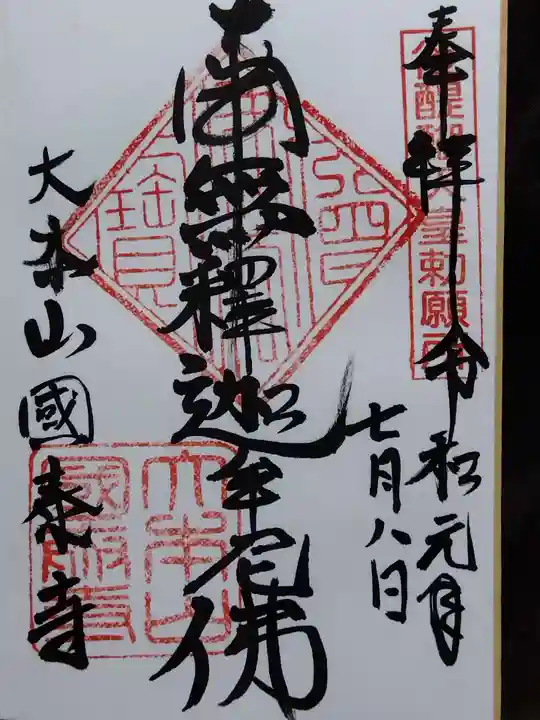 奉拝 令和元年
七月八日
後醍醐天皇勅願所
南無釋迦牟尼佛
大本山國泰寺